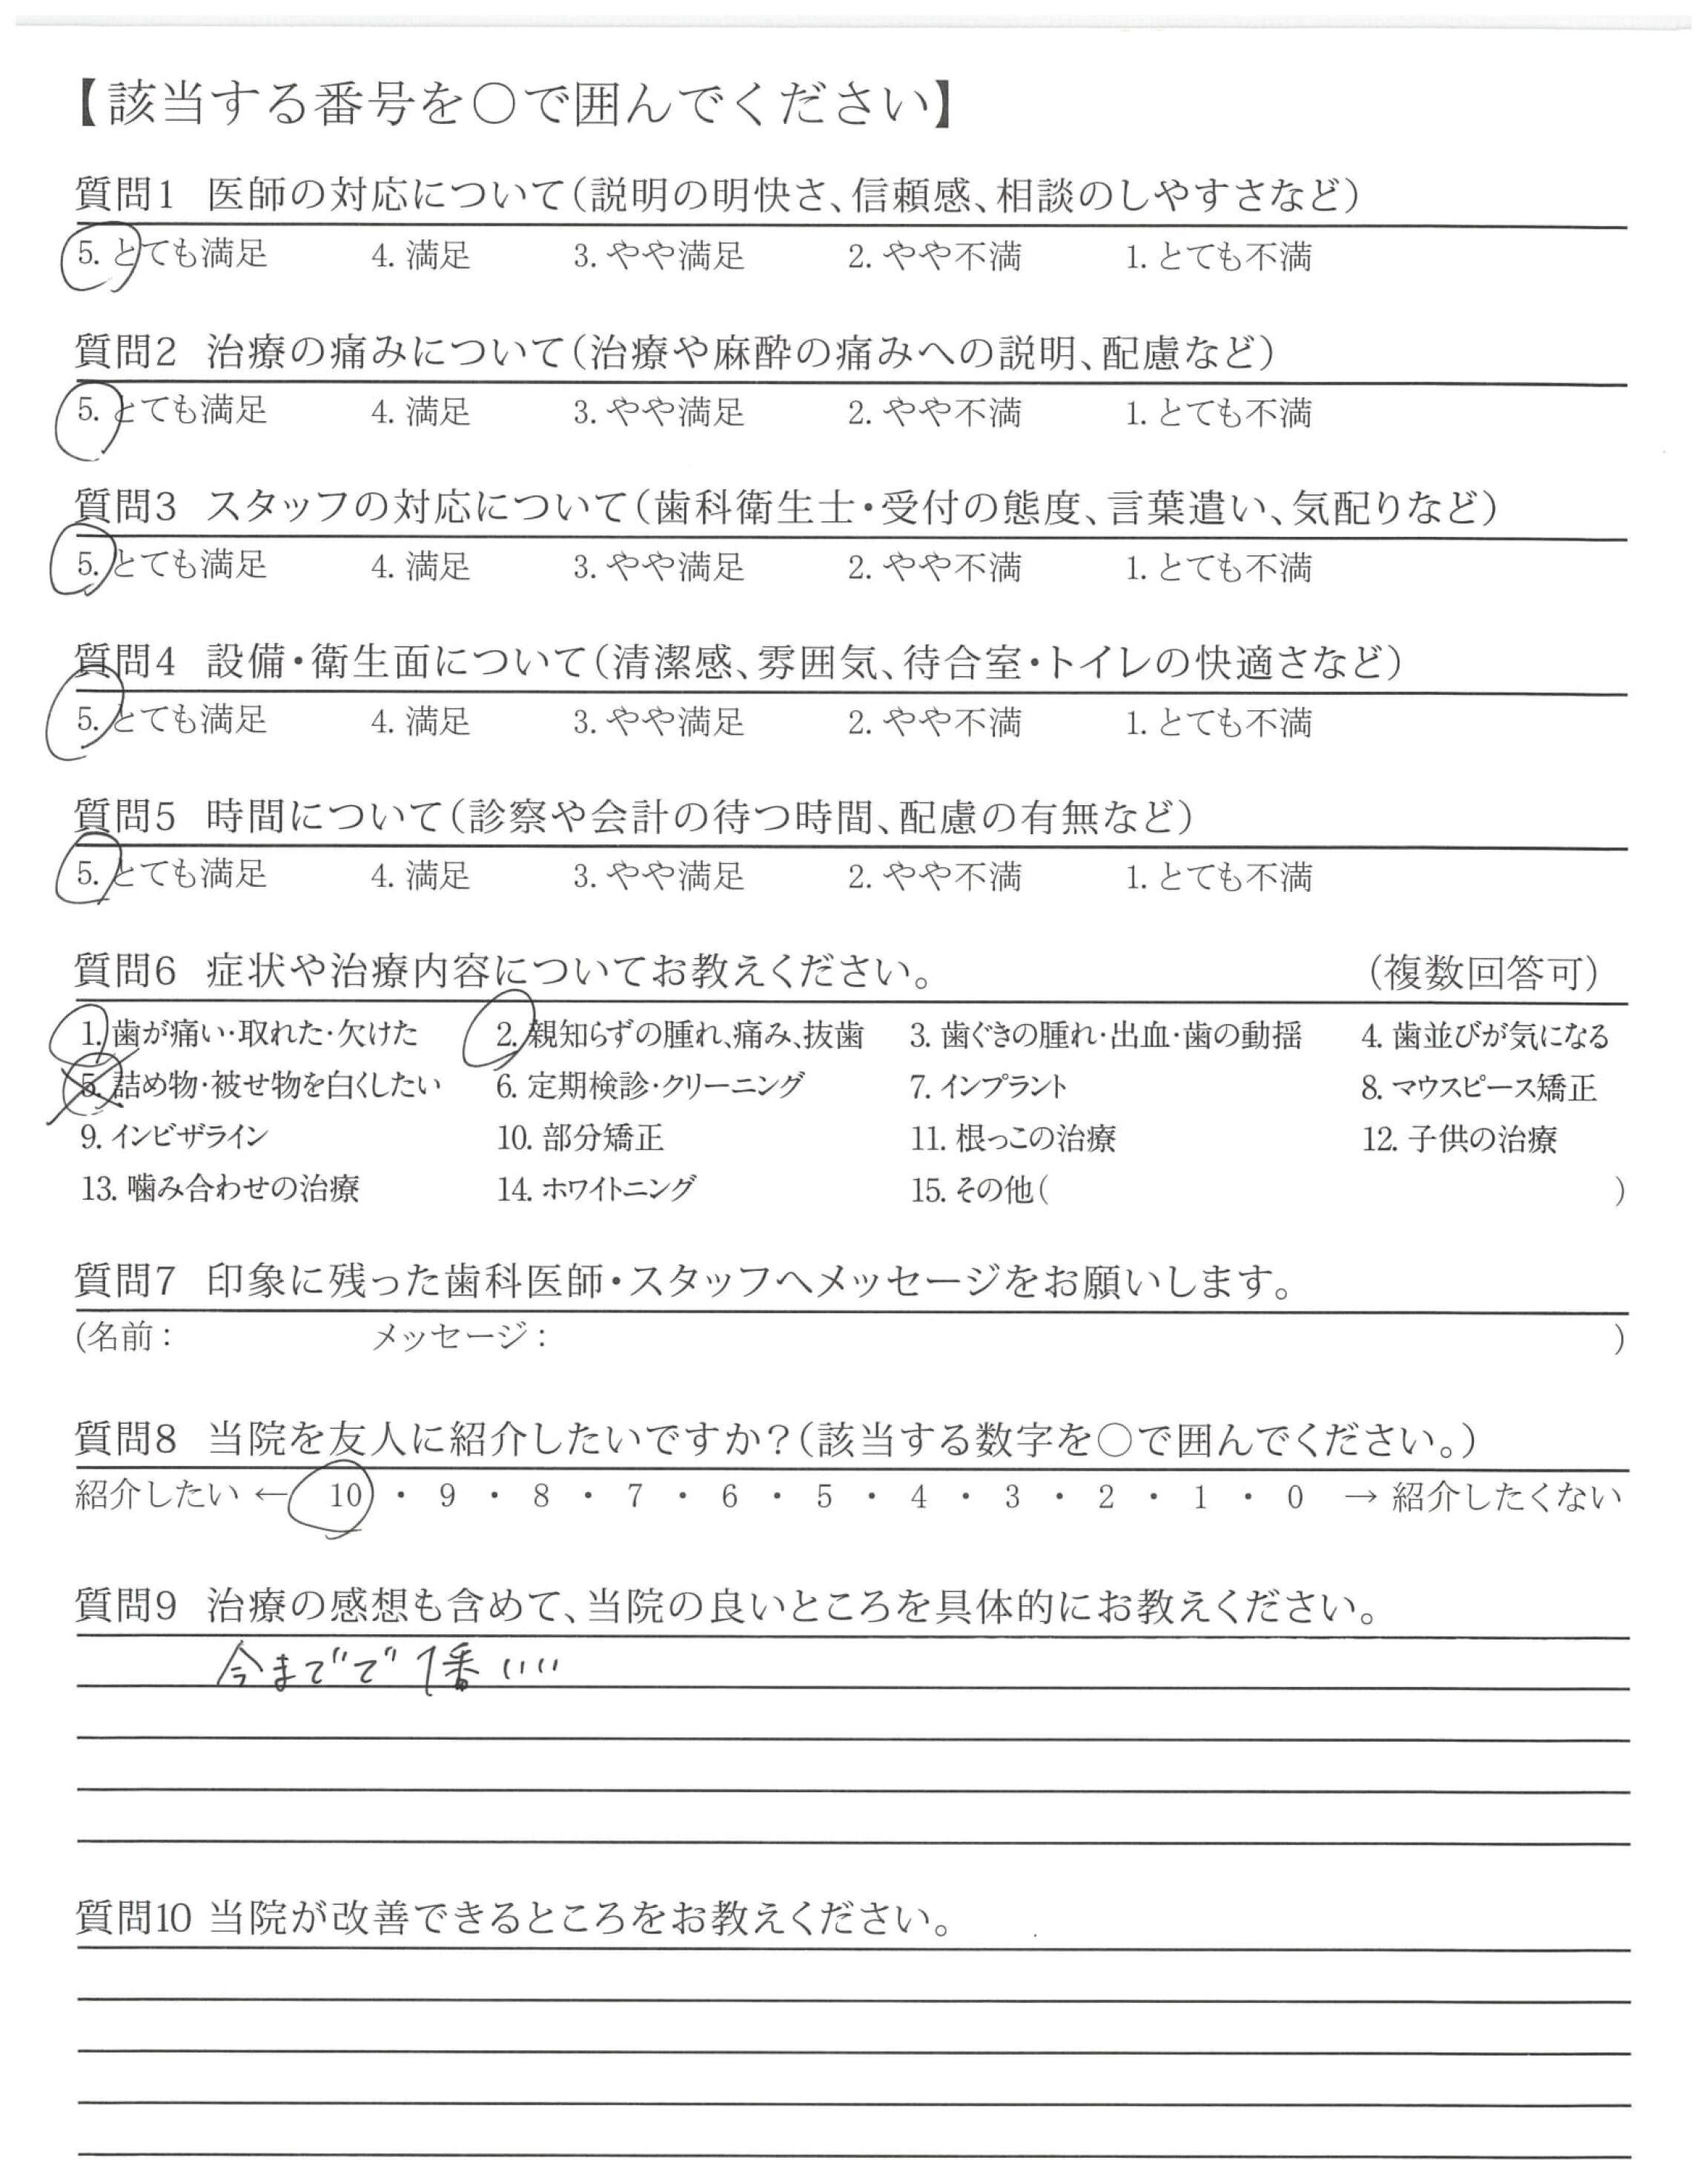 【該当する番号を○で囲んでください】
質問1 医師の対応について(説明の明快さ、信頼感、相談のしやすさなど)
5. とても満足 4. 満足 3. やや満足 2. やや不満 1. とても不満
質問2 治療の痛みについて(治療や麻酔の痛みへの説明、配慮など)
5. とても満足 4. 満足 3. やや満足 2. やや不満 1. とても不満
質問3 スタッフの対応について(歯科衛生士・受付の態度、言葉遣い、気配りなど)
5. とても満足 4. 満足 3. やや満足 2. やや不満 1. とても不満
質問4 設備・衛生面について(清潔感、雰囲気、待合室・トイレの快適さなど)
5. とても満足 4. 満足 3. やや満足 2. やや不満 1. とても不満
質問5 時間について(診察や会計の待つ時間、配慮の有無など)
5. とても満足 4. 満足 3. やや満足 2. やや不満 1. とても不満
質問6 症状や治療内容についてお教えください。 (複数回答可)
1. 歯が痛い・取れた・欠けた 2. 親知らずの腫れ、痛み、抜歯 3. 歯ぐきの腫れ・出血・歯の動揺 4. 歯並びが気になる
5. 詰め物・被せ物を白くしたい 6. 定期検診・クリーニング 7. インプラント 8. マウスピース矯正
9. インビザライン 10. 部分矯正 11. 根っこの治療 12. 子供の治療
13. 噛み合わせの治療 14. ホワイトニング 15. その他( )
質問7 印象に残った歯科医師・スタッフへメッセージをお願いします。
(名前: メッセージ: )
質問8 当院を友人に紹介したいですか?(該当する数字を○で囲んでください。)
紹介したい ← 10 ・ 9 ・ 8 ・ 7 ・ 6 ・ 5 ・ 4 ・ 3 ・ 2 ・ 1 ・ 0 → 紹介したくない
質問9 治療の感想も含めて、当院の良いところを具体的にお教えください。
今までで1番いい
質問10 当院が改善できるところをお教えください。